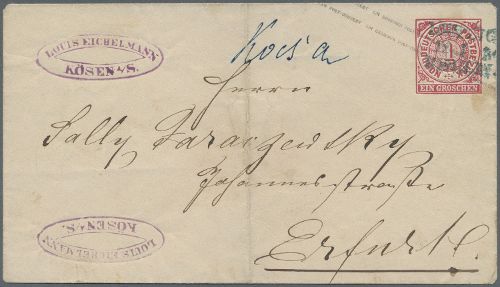 LOUIS EICHELMANN
KÖSEN a/S.
Kösen
NORDDEUTSCHER POSTBEZIRK
1
EIN GROSCHEN
Herrn
Sally
Johannesstraße
Erfurt.
LOUIS EICHELMANN
KÖSEN a/S.